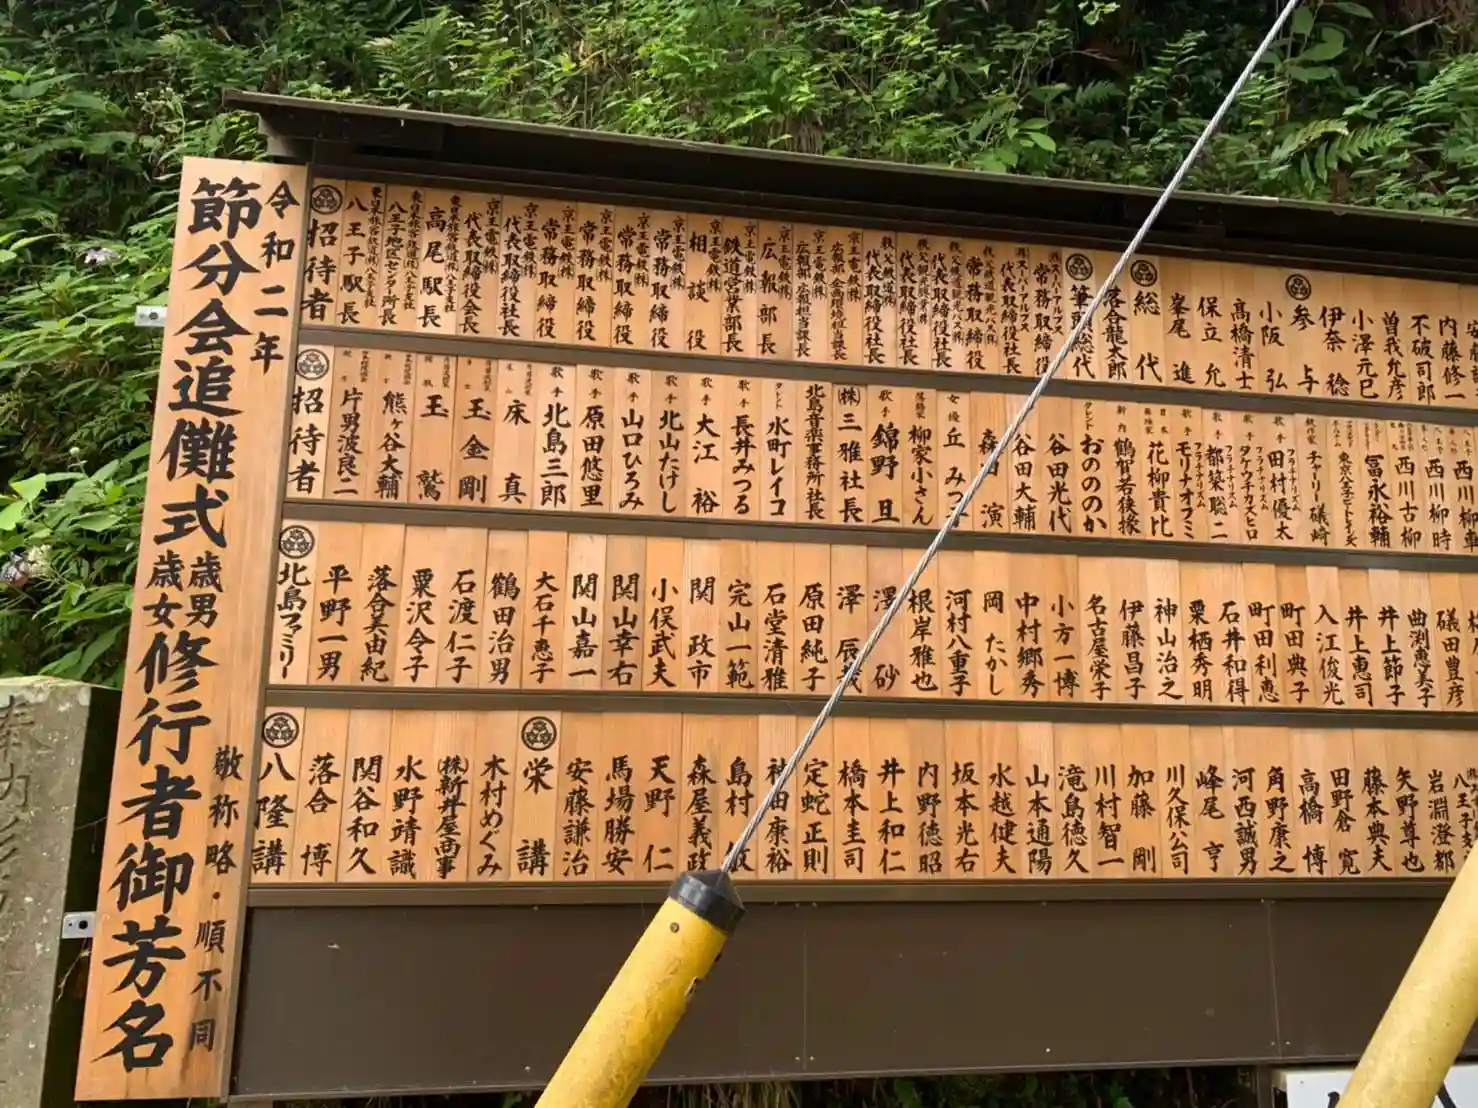 令和二年
節分会追儺式歳男歳女修行者御芳名
敬称略・順不同
招待者
八王子駅長
八王子地区センター所長
高尾駅長
京王電鉄㈱
代表取締役会長
京王電鉄㈱
代表取締役社長
京王電鉄㈱
常務取締役
京王電鉄㈱
常務取締役
京王電鉄㈱
常務取締役
京王電鉄㈱
常務取締役
京王電鉄㈱
相談役
京王電鉄㈱
鉄道営業部長
京王電鉄㈱
広報部長
京王電鉄㈱
広報部広報担当課長
京王電鉄㈱
代表取締役社長
代表取締役社長
代表取締役社長
常務取締役
代表取締役社長
常務取締役
筆頭総代
落合龍太郎
総代
峯尾進
保立允
髙橋清士
小阪弘
参与
伊奈稔
小澤元巳
曽我允彦
不破司郎
内藤修一
招待者
片男波良二
熊ヶ谷大輔
玉鷲
玉金剛
床真
歌手
北島三郎
歌手
原田悠里
歌手
山口ひろみ
歌手
北山たけし
歌手
大江裕
歌手
長井みつる
タレント
水町レイコ
北島音楽事務所社長
㈱三雅社長
歌手
錦野旦
落語家
柳家小さん
女優
丘みつ子
森田演
谷田大輔
谷田光代
タレント
おのののか
新内
鶴賀若狭掾
花柳貴比
歌手
モリナオフミ
歌手
都築聡二
歌手
タケウチカズヒロ
歌手
田村優太
チャーリー礒崎
冨永裕輔
西川古柳
西川柳時
北島ファミリー
平野一男
落合美由紀
粟沢令子
石渡仁子
鶴田治男
大石千恵子
関山嘉一
関山幸右
小俣武夫
関政市
完山一範
石堂清雅
原田純子
澤辰哉
澤砂
根岸雅也
河村八重子
岡たかし
中村郷秀
小方一博
名古屋栄子
伊藤昌子
神山治之
粟栖秀明
石井和得
町田利恵
町田典子
入江俊光
井上恵司
井上節子
曲渕惠美子
礒田豊彦
八隆講
落合博
関谷和久
水野靖識
㈱新井屋商事
木村めぐみ
栄講
安藤謙治
馬場勝安
天野仁
森屋義政
島村
神田康裕
定蛇正則
橋本圭司
井上和仁
内野徳昭
坂本光右
水越健夫
山本通陽
滝島徳久
川村智一
加藤剛
川久保公司
峰尾亨
河西誠男
角野康之
高橋博
田野倉寛
藤本典夫
矢野尊也
岩淵澄都